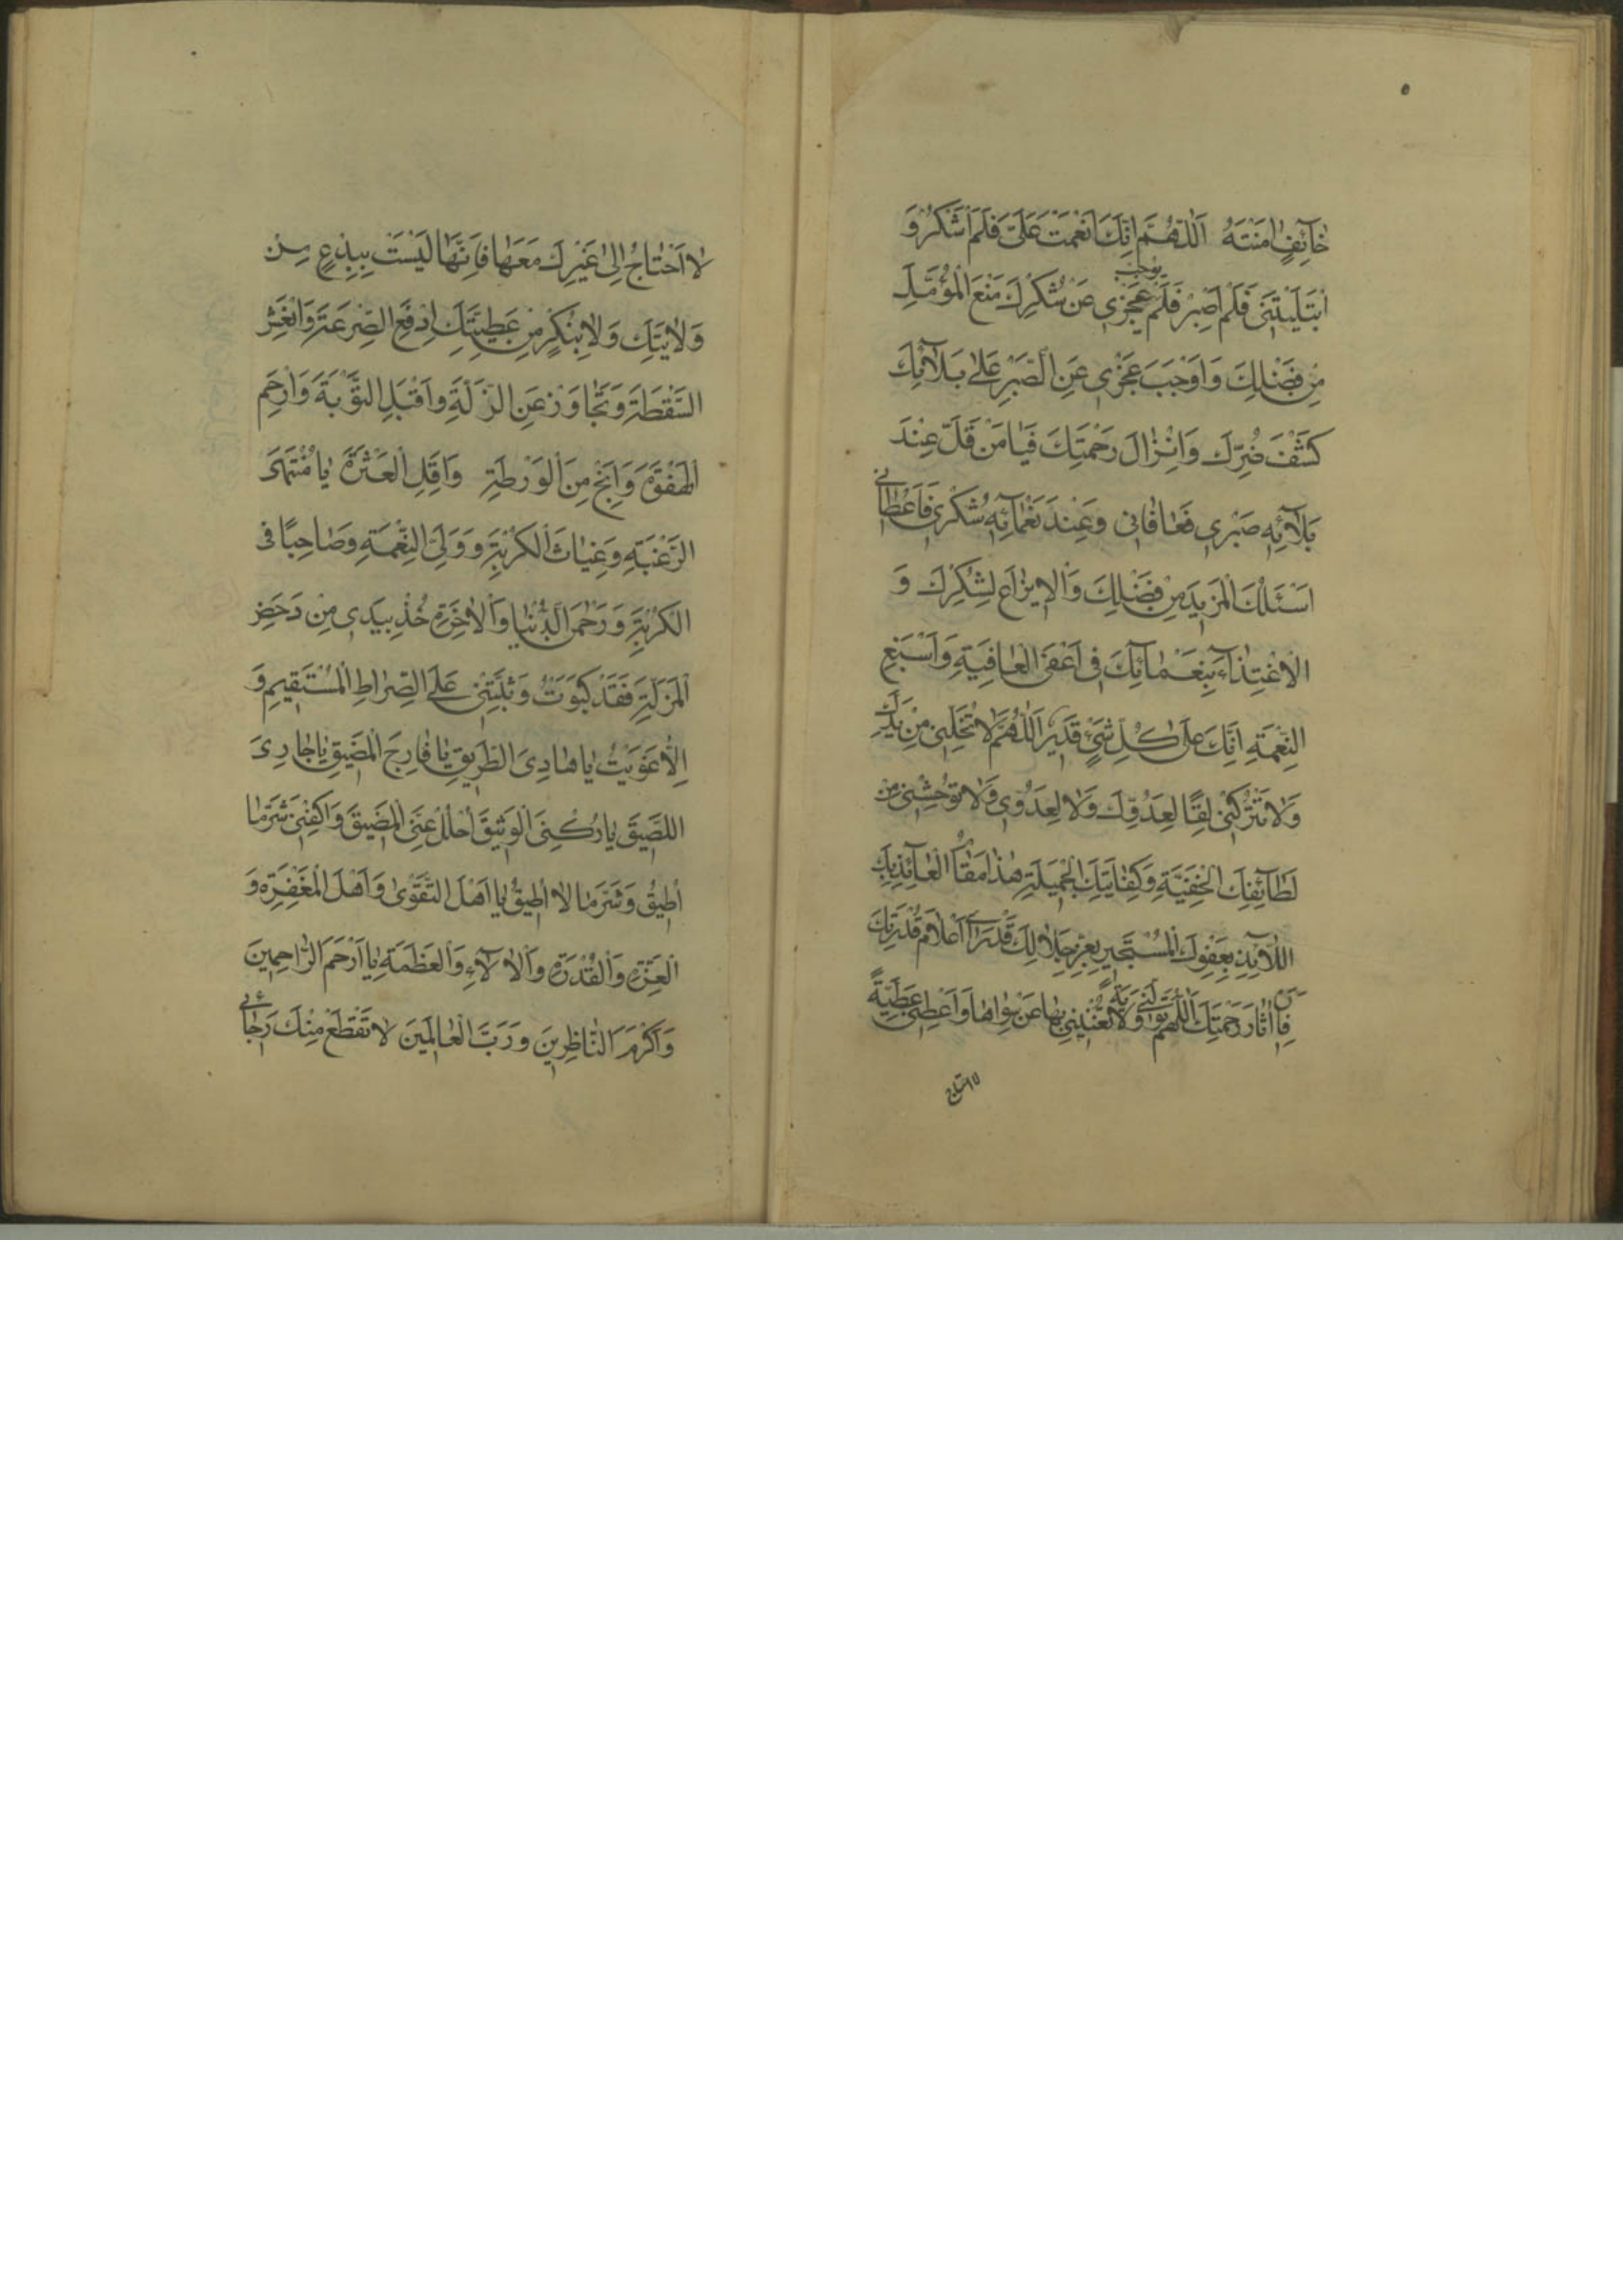 خٰآئِفٍ اٰمَنْتَهُ اَللّٰهُمَّ اِنَّكَ اَنْعَمْتَ عَلَىَّ فَلَمْ اَشْكُرْ وَ
ابْتَلَيْتَنى فَلَمْ اَصْبِرْ فَلَمْ يُوجِبْ عَجْزى عَنْ شُكْرِكَ مَنْعَ الْمُؤَمَّلِ
مِنْ فَضْلِكَ وَاَوْجَبَ عَجْزى عَنِ الصَّبْرِ عَلىٰ بَلٰآئِكَ
كَشْفَ ضُرِّكَ وَاِنْزٰالَ رَحْمَتِكَ فَيٰا مَنْ قَلَّ عِنْدَ
بَلٰآئِهِ صَبْرى فَعٰافٰانى وَعِنْدَ نَعْمٰآئِهِ شُكْرى فَاَعْطٰانى
اَسْئَلُكَ الْمَزيدَ مِنْ فَضْلِكَ وَالْايزٰاعَ لِشُكْرِكَ وَ
الْاِغْتِذٰآءَ بِنَعْمٰآئِكَ فى اَعْفَى الْعٰافِيَةِ وَاَسْبَغِ
النِّعْمَةِ اِنَّكَ عَلىٰ كُلِّ شَىْءٍ قَديرٌ اَللّٰهُمَّ لٰا تُخَلِّنى مِنْ يَدِكَ
وَلٰا تَتْرُكْنى لِقًا لِعَدُوِّكَ وَلٰا لِعَدُوّى وَلٰا تُوحِشْنى مِنْ
لَطٰآئِفِكَ الْخَفِيَّةِ وَكِفٰايَتِكَ الْجَميلَةِ هٰذٰا مَقٰامُ الْعٰآئِذِ بِكَ
اللّٰآئِذِ بِعَفْوِكَ الْمُسْتَجيرِ بِعِزِّ جَلٰالِكَ قَدْ رَاٰى اَعْلٰامَ قُدْرَتِكَ
فَاَرِنى اٰثٰارَ رَحْمَتِكَ اَللّٰهُمَّ تَوَلَّنى وَلٰايَةً تُغْنينى بِهٰا عَنْ سِوٰاهٰا وَاَعْطِنى عَطِيَّةً
لٰا احتاج
لٰا اَحْتٰاجُ اِلىٰ غَيْرِكَ مَعَهٰا فَاِنَّهٰا لَيْسَتْ بِبِدْعٍ مِنْ
وَلٰايَتِكَ وَلٰا بِنُكْرٍ مِنْ عَطِيَّتِكَ اِدْفَعِ الصَّرْعَةَ وَانْعَشِ
السَّقْطَةَ وَتَجٰاوَزْ عَنِ الزَّلَّةِ وَاقْبَلِ التَّوْبَةَ وَارْحَمِ
الْهَفْوَةَ وَاَنْجِ مِنَ الْوَرْطَةِ وَاَقِلِ الْعَثْرَةَ يٰا مُنْتَهَى
الرَّغْبَةِ وَغِيٰاثَ الْكُرْبَةِ وَوَلِىَّ النِّعْمَةِ وَصٰاحِبًا فى
الْكُرْبَةِ وَرَحْمٰنَ الدُّنْيٰا وَالْاٰخِرَةِ خُذْ بِيَدى مِنْ دَحَضِ
الْمَزَلَّةِ فَقَدْ كَبَوْتُ وَثَبِّتْنى عَلَى الصِّرٰاطِ الْمُسْتَقيمِ وَ
اِلّٰا غَوَيْتُ يٰا هٰادِىَ الطَّريقِ يٰا فٰارِجَ الْمَضيقِ يٰا جٰارِىَ
اللَّصيقَ يٰا رُكْنِىَ الْوَثيقَ اُحْلُلْ عَنِّى الْمَضيقَ وَاكْفِنى شَرَّ مٰا
اُطيقُ وَشَرَّ مٰا لٰا اُطيقُ يٰا اَهْلَ التَّقْوىٰ وَاَهْلَ الْمَغْفِرَةِ وَ
الْعِزَّةِ وَالْقُدْرَةِ وَالْاٰلٰآءِ وَالْعَظَمَةِ يٰا اَرْحَمَ الرّٰاحِمينَ
وَاَكْرَمَ النّٰاظِرينَ وَرَبَّ الْعٰالَمينَ لٰا تَقْطَعْ مِنْكَ رَجٰائى